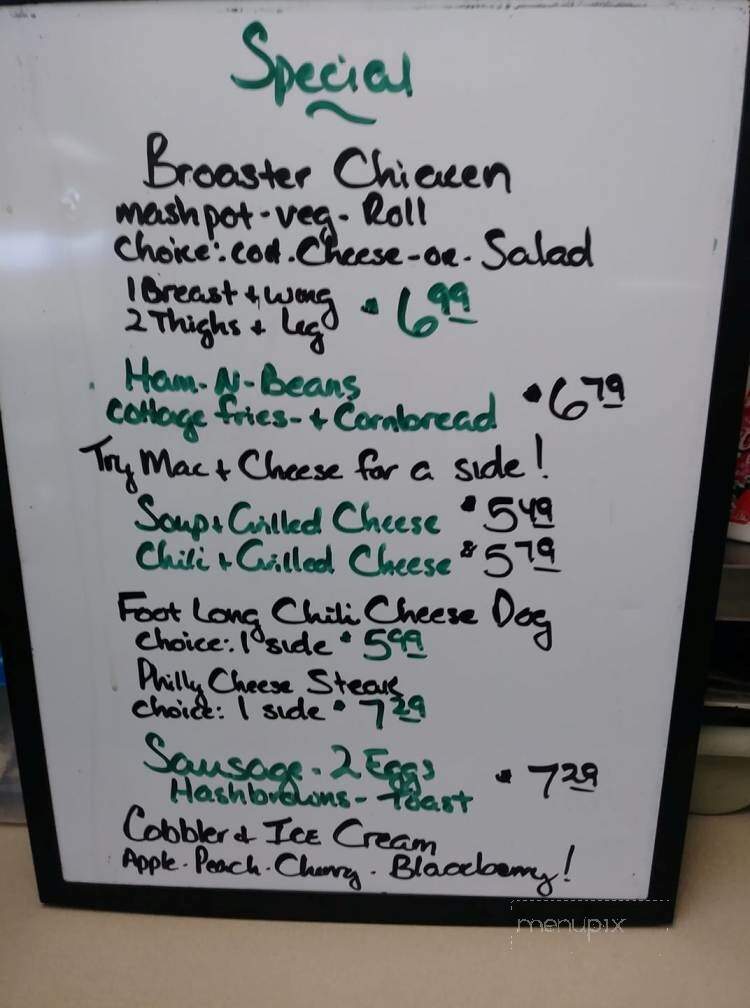 Special
Broaster Chicken
mash pot - veg - Roll
Choice: cot. Cheese - or - Salad
1 Breast + wing
2 Thighs + Leg
6.99
Ham - N - Beans
Cottage fries - + Cornbread
6.79
Try Mac + Cheese for a side!
Soup + Grilled Cheese $5.49
Chili + Grilled Cheese $5.79
Foot Long Chili Cheese Dog
Choice: 1 side 5.99
Philly Cheese Steak
Choice: 1 side 7.29
Sausage - 2 Eggs
Hashbrowns - Toast
7.29
Cobbler & Ice Cream
Apple - Peach - Cherry - Blackberry!
menupix